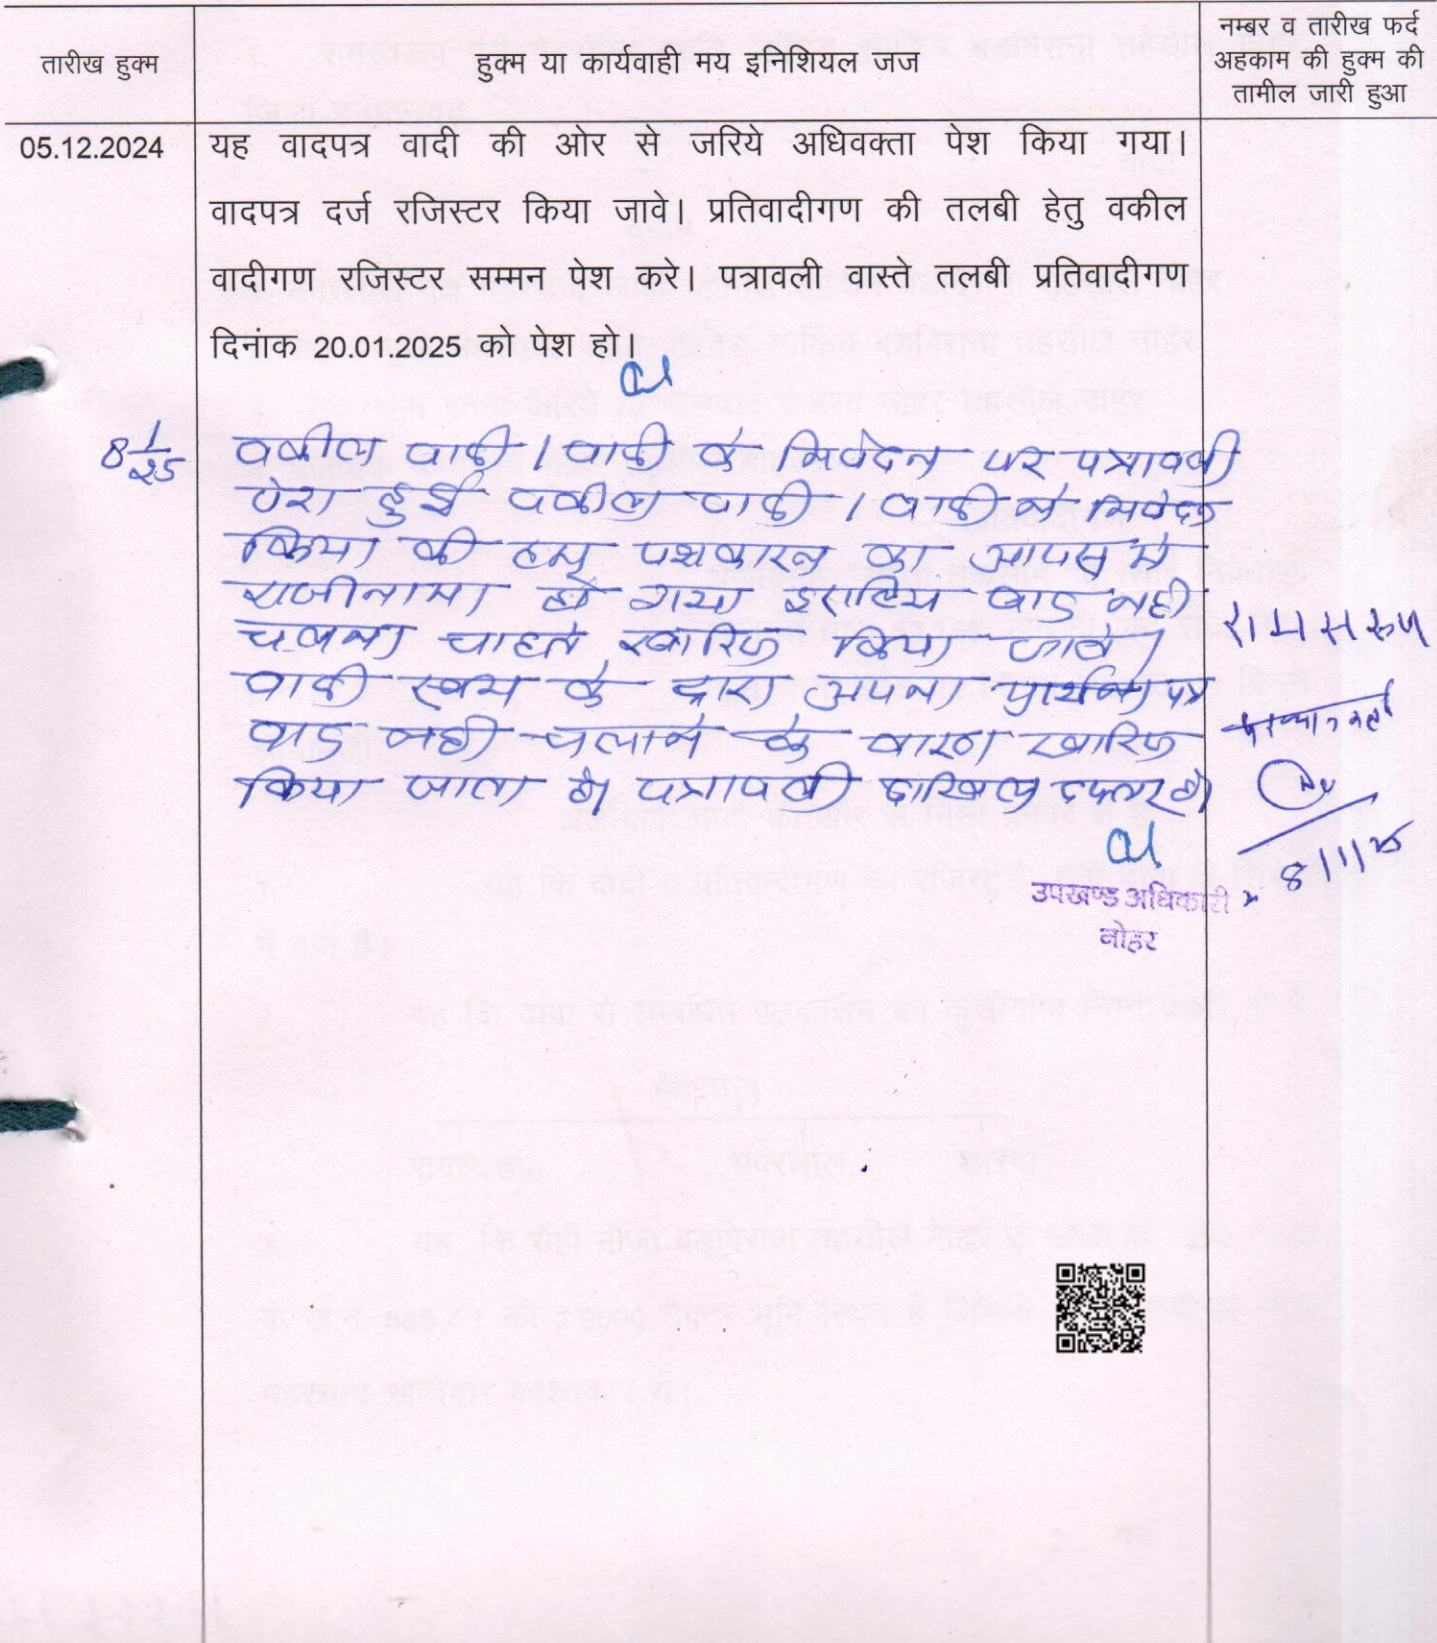 तारीख हुक्म
हुक्म या कार्यवाही मय इनिशियल जज
नम्बर व तारीख फर्द
अहकाम की हुक्म की
तामील जारी हुआ
05.12.2024
यह वादपत्र वादी की ओर से जरिये अधिवक्ता पेश किया गया।
वादपत्र दर्ज रजिस्टर किया जावे। प्रतिवादीगण की तलबी हेतु वकील
वादीगण रजिस्टर सम्मन पेश करे। पत्रावली वास्ते तलबी प्रतिवादीगण
दिनांक 20.01.2025 को पेश हो।
8 1/25
वकील वादी। वादी के निवेदन पर पत्रावली
पेश हुई वकील वादी। वादी ने निवेदन
किया की हम पक्षकारन का आपस मे
राजीनामा हो गया इसलिय वाद नही
चलाना चाहते खारिज किया जावे।
वादी स्वयं के द्वारा अपना प्रार्थना पत्र
वाद नही चलाने के कारण खारिज
किया जाता है। पत्रावली दाखिल दफ्तर हो।
रामसरुप
8/1/25
उपखण्ड अधिकारी
नोहर